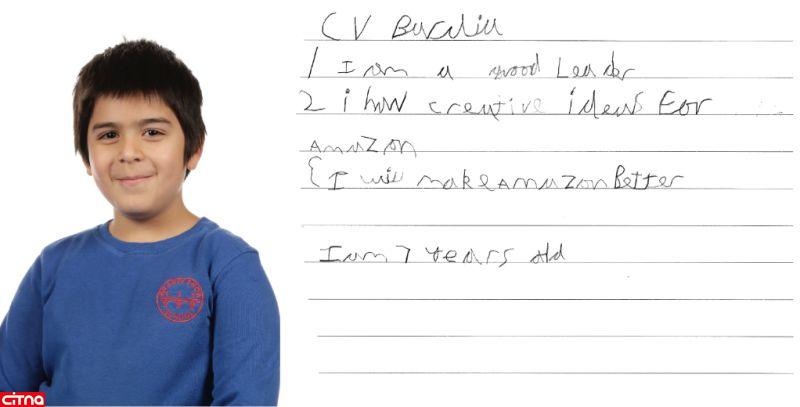 CV
1 I am a good Leader
2 i how creative ideas For
AmaZon
I will make AmaZon Better
I am 7 years old
citna